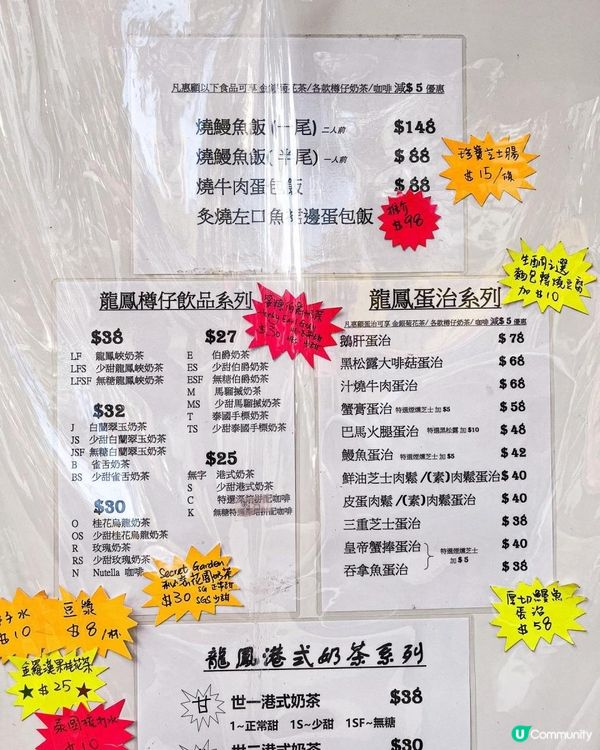 凡惠顧以下食品可享 金銀菊花茶/各款樽仔奶茶/咖啡 減$5 優惠
燒鰻魚飯(一尾) 二人前 $148
燒鰻魚飯(半尾) 一人前 $88
燒牛肉蛋包飯 $88
炙燒左口魚裙邊蛋包飯
推介
$98
珍寶芝士腸
$15/條
龍鳳樽仔飲品系列
$38
LF 龍鳳峽奶茶
LFS 少甜龍鳳峽奶茶
LFSF 無糖龍鳳峽奶茶
$32
J 白蘭翠玉奶茶
JS 少甜白蘭翠玉奶茶
JSF 無糖白蘭翠玉奶茶
B 雀舌奶茶
BS 少甜雀舌奶茶
$30
O 桂花烏龍奶茶
OS 少甜桂花烏龍奶茶
R 玫瑰奶茶
RS 少甜玫瑰奶茶
N Nutella 咖啡
$27
E 伯爵奶茶
ES 少甜伯爵奶茶
ESF 無糖伯爵奶茶
M 馬騮搣奶茶
MS 少甜馬騮搣奶茶
T 泰國手標奶茶
TS 少甜泰國手標奶茶
$25
無字 港式奶茶
S 少甜港式奶茶
C 特選深焙拼配咖啡
K 無糖特選深焙拼配咖啡
Earl Grey
$30
Secret Garden
秘密花園奶茶
$30 SG 正常甜
SGS 少甜
龍鳳蛋治系列
凡惠顧蛋治可享 金銀菊花茶/各款樽仔奶茶/咖啡 減$5 優惠
鵝肝蛋治 $78
黑松露大啡菇蛋治 $68
汁燒牛肉蛋治 $68
蟹膏蛋治 特選煙燻芝士 加 $5 $58
巴馬火腿蛋治 特選黑松露 加 $10 $48
鰻魚蛋治 特選煙燻芝士 加 $5 $42
鮮油芝士肉鬆/(素)肉鬆蛋治 $40
皮蛋肉鬆/(素)肉鬆蛋治 $40
三重芝士蛋治 $38
皇帝蟹捧蛋治 $40
吞拿魚蛋治 $38
特選煙燻芝士
加 $5
生酮之選
加$10
厚切鰻魚
蛋治
$58
水
$10
豆漿
$8/杯
金羅漢果桂花茶
★$25★
$10
龍鳳港式奶茶系列
甘
世一港式奶茶 $38
1~正常甜 1S~少甜 1SF~無糖
世二港式奶茶 $30
U Community